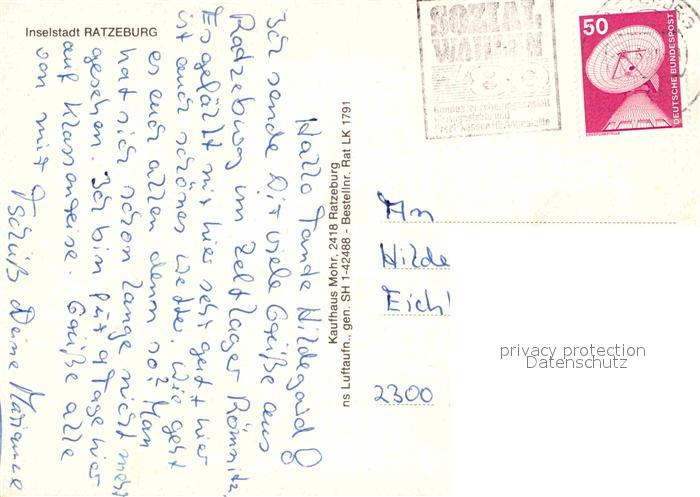 Inselstadt RATZEBURG
Hallo Tante Hildegard!
Ich sende Dir viele Grüße aus
Ratzeburg im Zeltlager Römnitz.
Es gefällt mir hier sehr gut. Hier
ist auch schönes Wetter. Wie geht
es euch allen denn so? Man
hat sich schon lange nicht mehr
gesehen. Ich bin für 9 Tage hier
auf Klassenreise Grüße alle
von mir
Tschüß Deine Marianne
Kaufhaus Mohr, 2418 Ratzeburg
ns Luftaufn., gen. SH 1-42488 - Bestellnr. Rat LK 1791
SOZIAL
WAHLEN
50
DEUTSCHE BUNDESPOST
An
Hilde
Eich
2300
privacy protection
Datenschutz